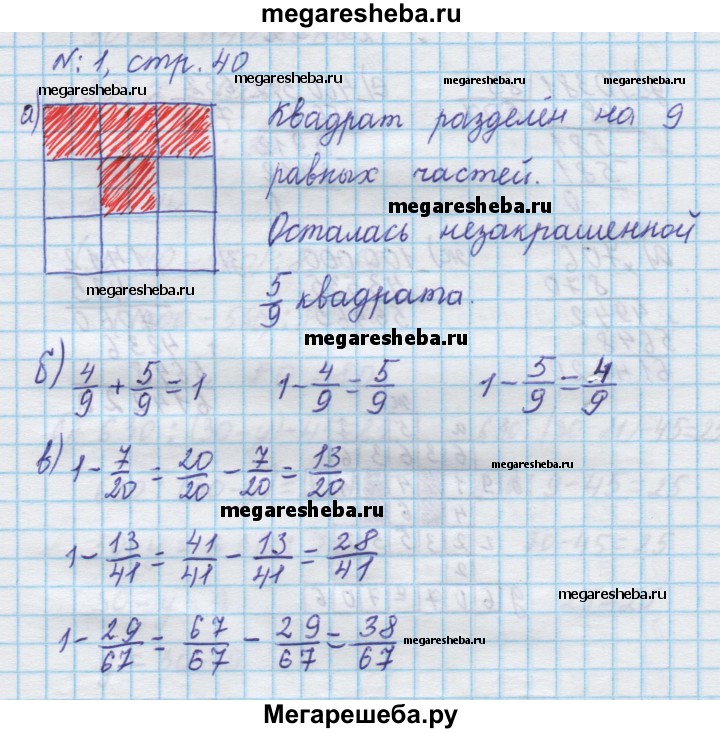 megaresheba.ru
N: 1, стр. 40
megaresheba.ru megaresheba.ru megaresheba.ru
а) Квадрат разделён на 9
равных частей.
megaresheba.ru
Осталась незакрашенной
megaresheba.ru
5/9 квадрата.
megaresheba.ru
б) 4/9 + 5/9 = 1 1 - 4/9 = 5/9 1 - 5/9 = 4/9
в) 1 - 7/20 = 20/20 - 7/20 = 13/20
megaresheba.ru
megaresheba.ru
1 - 13/41 = 41/41 - 13/41 = 28/41
megaresheba.ru
1 - 29/67 = 67/67 - 29/67 = 38/67
megaresheba.ru
Мегарешеба.ру